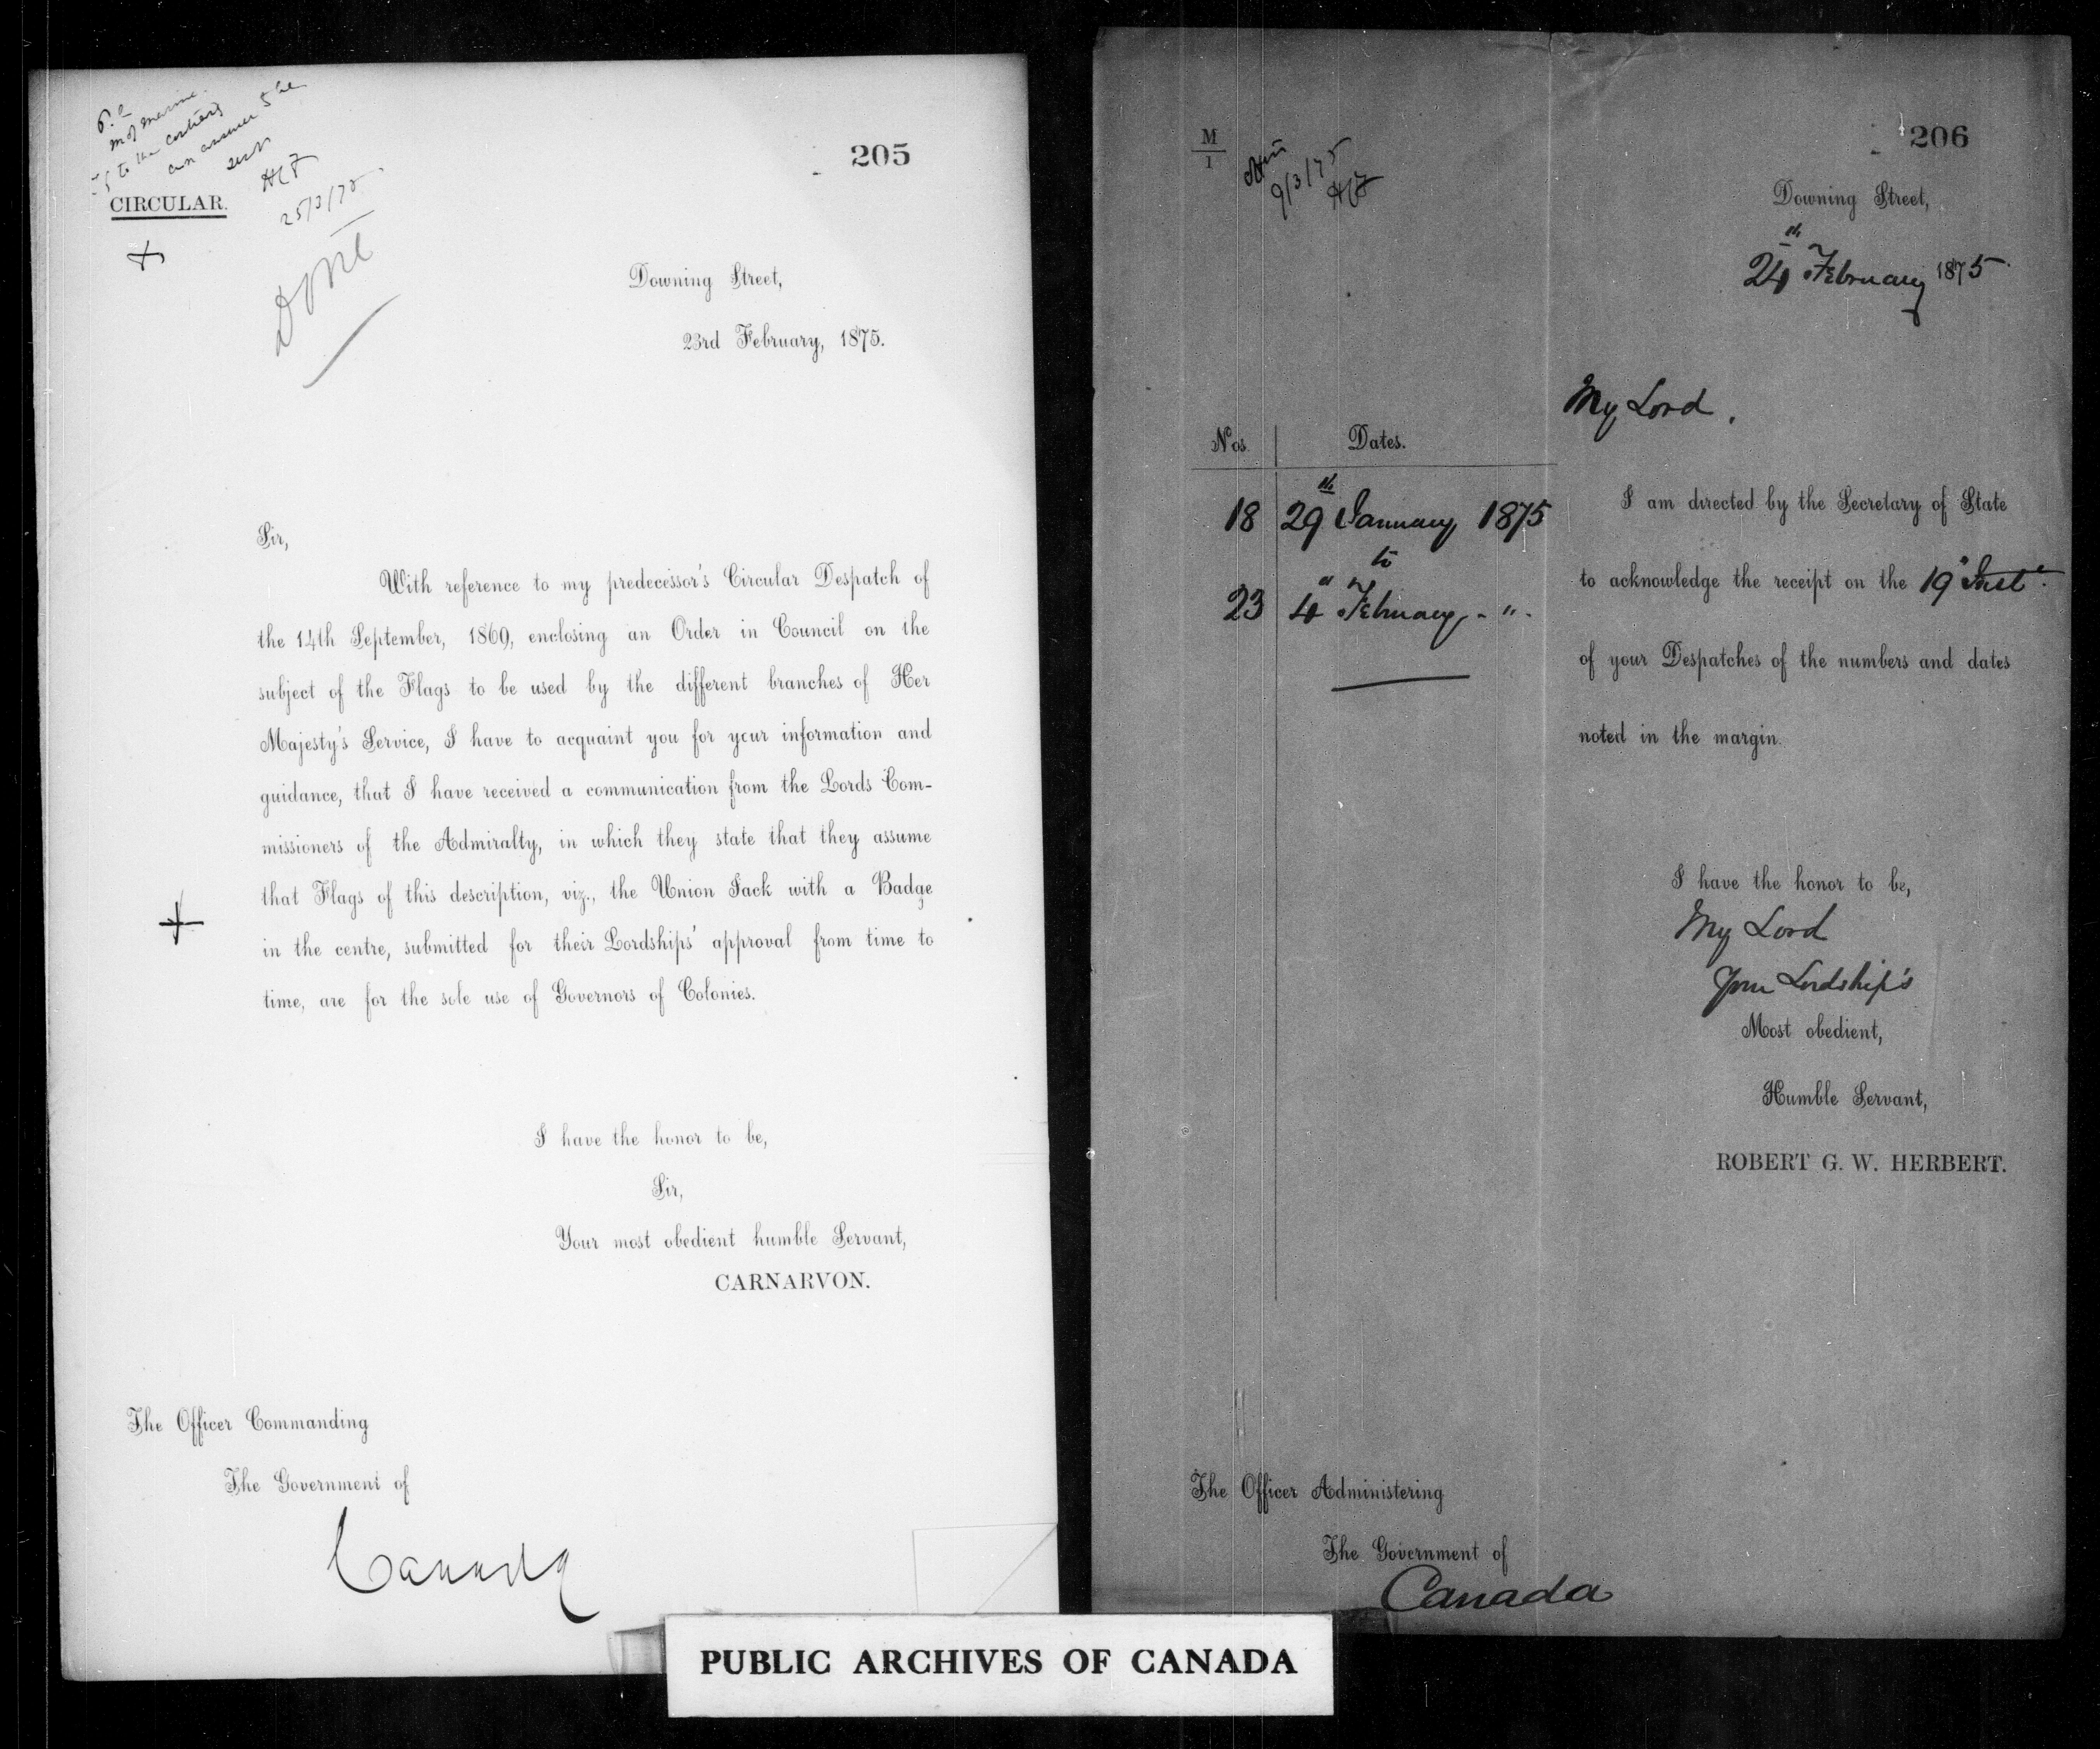 P.C.
M of Marine
to the
HCF
25/3/75
205
CIRCULAR.
Done
Downing Street,
23rd February, 1875.
Sir,
With reference to my predecessor's Circular Despatch of
the 14th September, 1869, enclosing an Order in Council on the
subject of the Flags to be used by the different branches of Her
Majesty's Service, I have to acquaint you for your information and
guidance, that I have received a communication from the Lords Com-
missioners of the Admiralty, in which they state that they assume
that Flags of this description, viz., the Union Jack with a Badge
in the centre, submitted for their Lordships' approval from time to
time, are for the sole use of Governors of Colonies.
I have the honor to be,
Sir,
Your most obedient humble Servant,
CARNARVON.
The Officer Commanding
The Government of
Canada
M
1
9/3/75
206
Downing Street,
24th February 1875.
My Lord,
Nos. Dates.
18 29th January 1875
to
23 4" February - " -
I am directed by the Secretary of State
to acknowledge the receipt on the 19" Inst.
of your Despatches of the numbers and dates
noted in the margin.
I have the honor to be,
My Lord
Your Lordship's
Most obedient,
Humble Servant,
ROBERT G. W. HERBERT.
The Officer Administering
The Government of
Canada
PUBLIC ARCHIVES OF CANADA